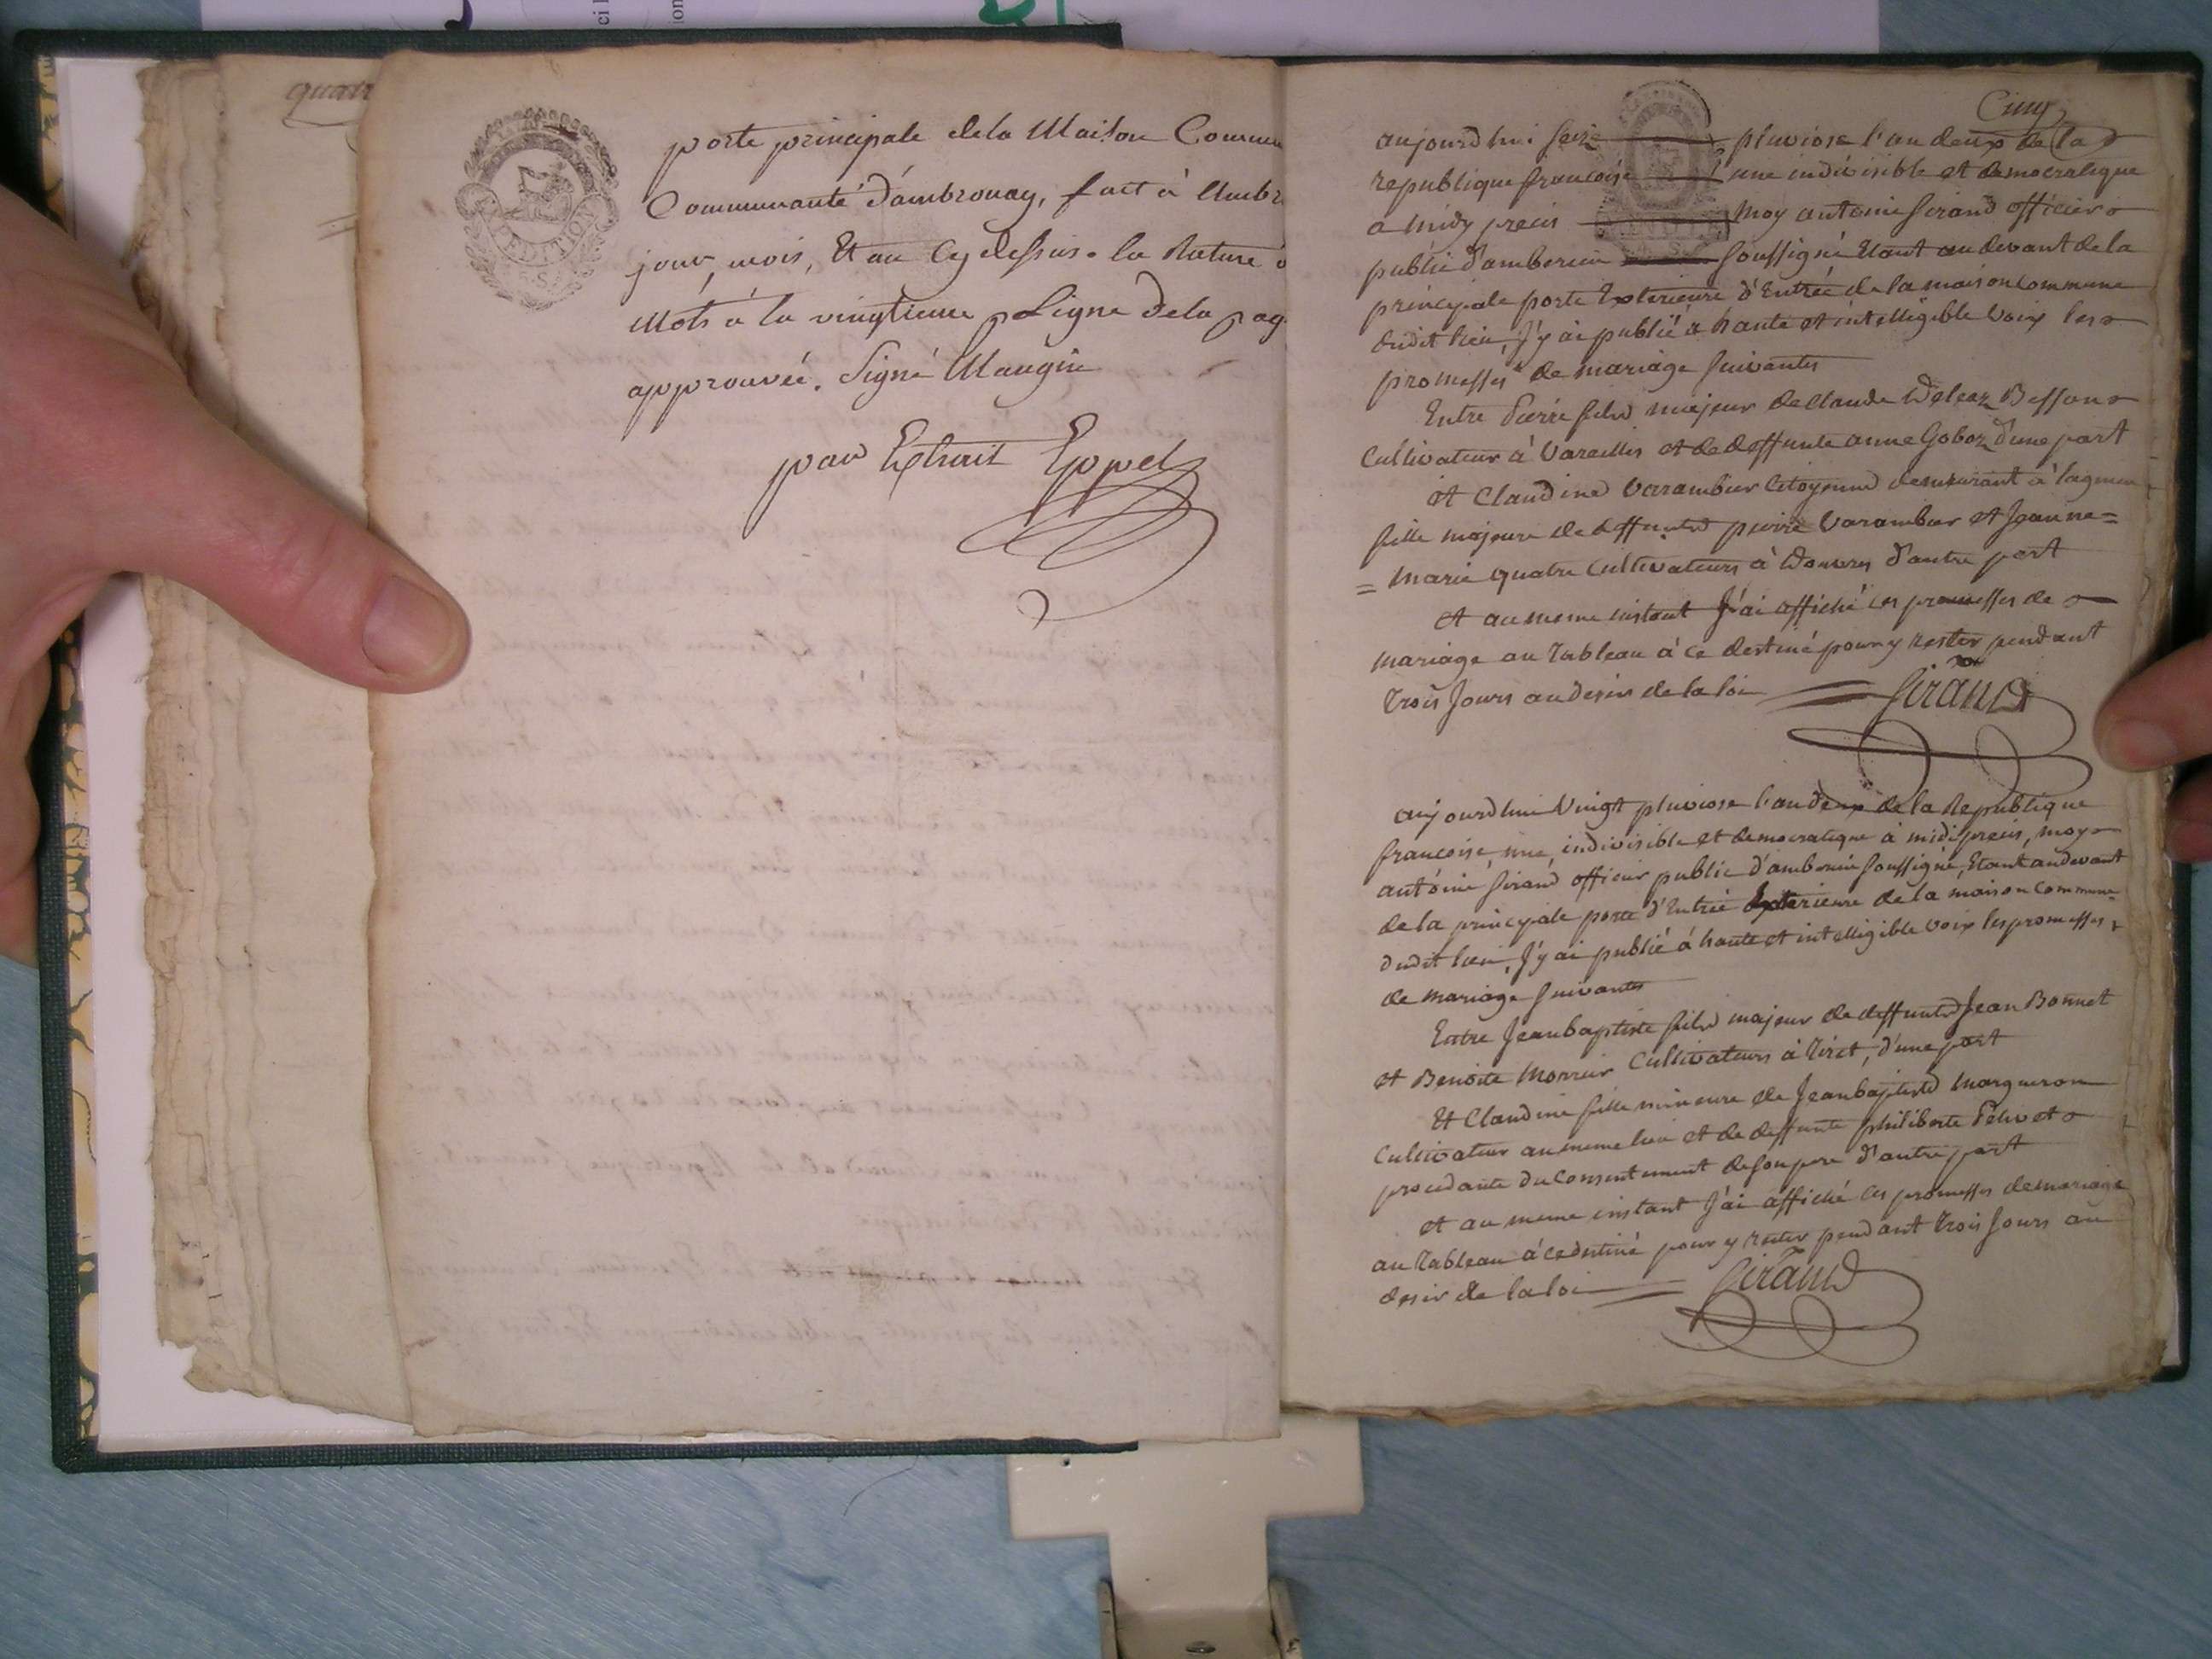 quatr
porte principale dela Maison Commu
Communauté d'ambronay, fait à Ambr
jour, mois, Et an Cy dessus. la Rature
Mots à la vingtieme Ligne dela pag
approuvée. Signé Maugin
par Extrait Eppel
EXPEDITION
Cinq
aujourdhui seize pluviose l'an deux de la
republique francoise une indivisible et democratique
a midy precis moy antoine sirand officier
public d'amberieu soussigné Etant au devant de la
principale porte Exterieure d'Entrée de la maison commune
dudit lieu, J'y ai publié a haute et intelligible voix les
promesses de mariage suivantes
Entre Pierre fils majeur de Claude Besson
Cultivateur à Vareilles et de deffunte anne Goboz d'une part
et Claudine Varambier Citoyenne demeurant à
fille majeure de deffunts pierre Varambier et Jeanne=
=Marie quatre Cultivateurs à Douvres d'autre part
et au meme instant J'ai affiché ces promesses de
mariage au Tableau à ce destiné pour y rester pendant
trois Jours au desir de la loi Sirand
aujourdhui Vingt pluviose l'an deux de la Republique
francoise, une, indivisible et democratique a midi precis, moy
antoine sirand officier public d'amberieu soussigné, Etant au devant
de la principale porte d'Entrée Exterieure de la maison commune
dudit lieu, J'y ai publié à haute et intelligible voix les promesses
de mariage suivantes
Entre Jeanbaptiste fils majeur de deffunts Jean Bonnet
et Benoite Cultivateurs à Tiret, d'une part
Et Claudine fille mineure de Jeanbaptiste Margueron
Cultivateur au meme lieu et de deffunte philiberte
procedante du Consentement de son pere d'autre part
et au meme instant J'ai affiché ces promesses de mariage
au Tableau à ce destiné pour y rester pendant trois Jours au
desir de la loi Sirand